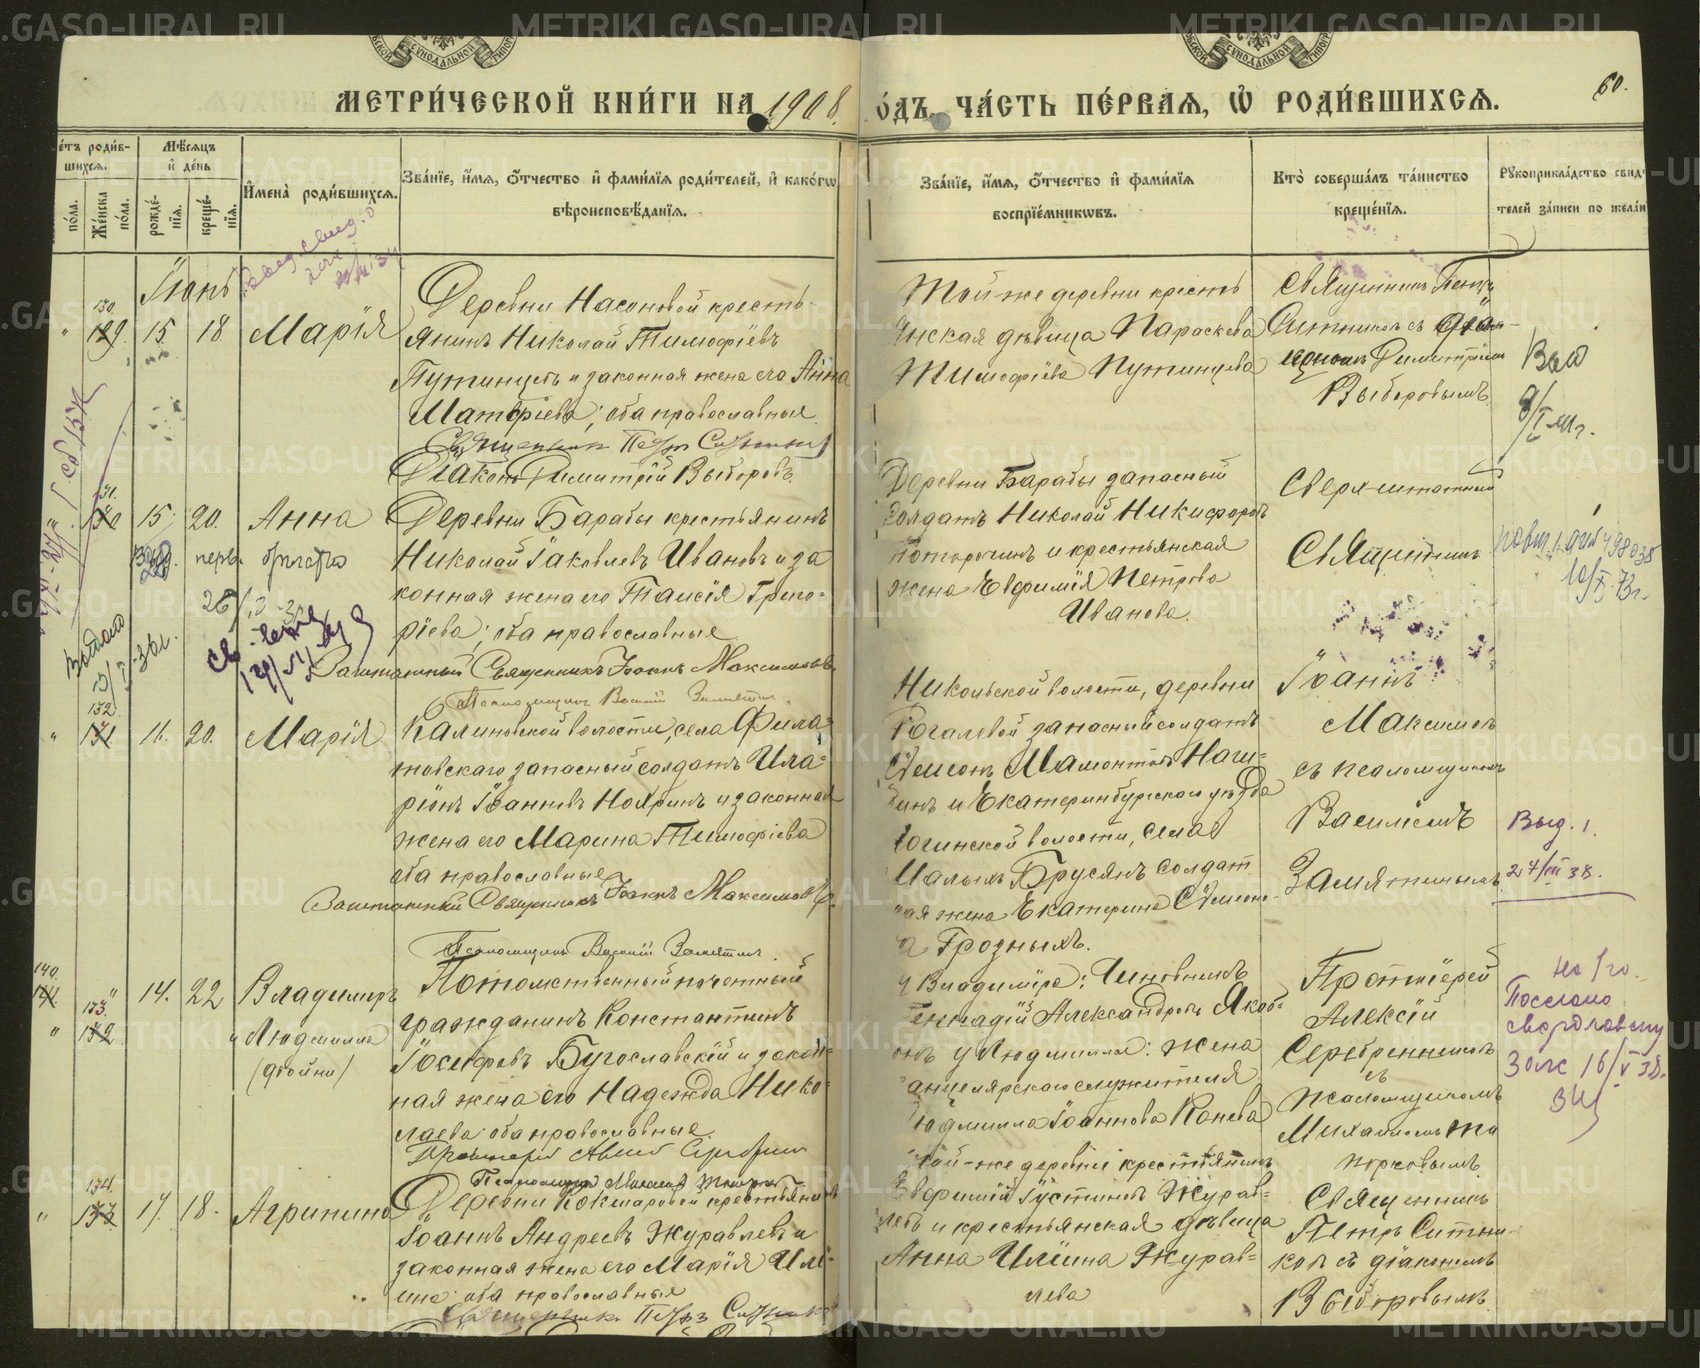 МЕТРИ́ЧЕСКОЙ КНИ́ГИ НА 1908
О́ДЪ, ЧА́СТЬ ПЕ́РВАЯ, Ѡ РОДИ́ВШИХСЯ.
60.
е́тъ роди́в-
шихся.
по́ла.
Же́нска
по́ла.
Мѣ́сяцъ
и́ де́нь
рожде́-
нїя.
креще́-
нїя.
И҆мена̀ роди́вшихся.
Зва́нїе, и҆́мя, ѻ҆́тчество и҆ фами́лїя роди́телей, и҆ како́гѡ
вѣроисповѣ́данїя.
Зва́нїе, и҆́мя, ѻ҆́тчество и҆ фами́лїя
воспрїе́мниковъ.
Кто̀ соверша́лъ та́инство
креще́нїя.
Рꙋкоприкла́дство свид
телей за́писи по жела́н
Іюнь
130.
129.
15.
18.
Марія
Деревни Насоновой кресть-
янинъ Николай Тимофіевъ
Путинцевъ и законная жена его Анна
Матвѣева; оба православные
Священникъ Петръ Ситников
Діаконъ Димитрій Выборовъ.
Той-же деревни кресть
янская дѣвица Параскева
Тимофіева Путинцева
Священникъ Петръ
Ситниковъ съ діа-
кономъ Димитріемъ
Выборовымъ.
131.
130
15.
20.
Анна
Деревни Барабы крестьянинъ
Николай Іаковлевъ Ивановъ и за
конная жена его Таисія Григо-
ріева; оба православные
Заштатный Священникъ Іоаннъ Максимовъ.
Псаломщикъ Василій Замятин.
Деревни Барабы запасный
солдатъ Николай Никифоровъ
и крестьянская
жена Евфимія Петрова
Иванова.
Сверхштатный
Священникъ
10/X-73 г.
132.
131.
16.
20.
Марія
Калиновской волости, села Фила-
товскаго запасный солдатъ Ила-
ріонъ Іоанновъ Нояринъ и законная
жена его Марина Тимофіева
оба православные
Заштатный Священникъ Іоаннъ Максимов
Псаломщикъ Василій Замятин.
Никольской волости, деревни
Рогалевой запасный солдатъ
Симеонъ Мамонтовъ Наги-
бинъ и Екатеринбургскаго уѣзда
Логинской волости, села
Малыхъ Брусянъ солдат
ая жена Екатерина Симеоно-
а Грозныхъ.
Іоаннъ
Максимовъ
съ псаломщикомъ
Василіемъ
Замятинымъ
Выд. 1.
27/III 38.
140.
133.
132.
14.
22
Владимиръ
Людмилла
(двойни)
Потомственный почетный
гражданинъ Константинъ
Іосифовъ Бугославскій и закон-
ная жена его Надежда Нико-
лаева: оба православные
у Владиміра: Чиновникъ
Геннадій Александровъ Якоб-
онъ у Людмиллы: жена
анцелярскаго служителя
Людмилла Іоаннова Конева
Протоіерей
Алексій
Серебренниковъ
съ
псаломщикомъ
Михаиломъ По
норковымъ
Послано
свердловскому
Загс 16/V 38.
134.
133
17.
18.
Агрипина
Деревни Кокшаровой крестьянинъ
Іоаннъ Андреевъ Журавлевъ и
законная жена его Марія Илі-
ина: оба православные
Священникъ Петръ Ситников
Той-же деревни крестьянинъ
Евфимій Іустиновъ Журав-
левъ и крестьянская дѣвица
Анна Иліина Журав-
лева
Священникъ
Петръ Ситни-
ковъ съ діакономъ
Выборовымъ.
METRIKI.GASO-URAL.RU